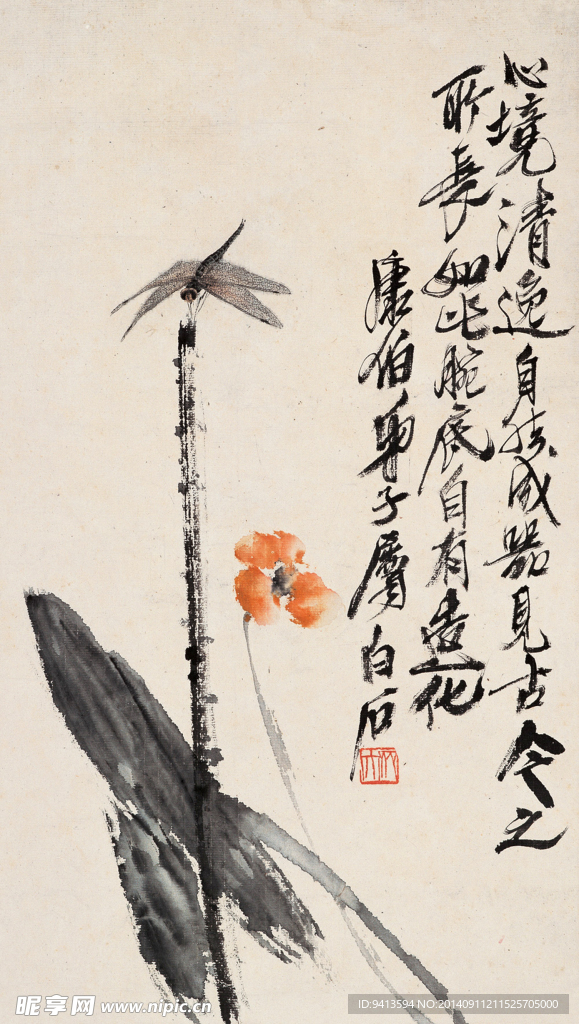 心境清逸自然成器見古今之
所長如此腕底自有造化
康伯弟子屬白石
昵享网 www.nipic.cn
ID:9413594 NO:20140911211525705000